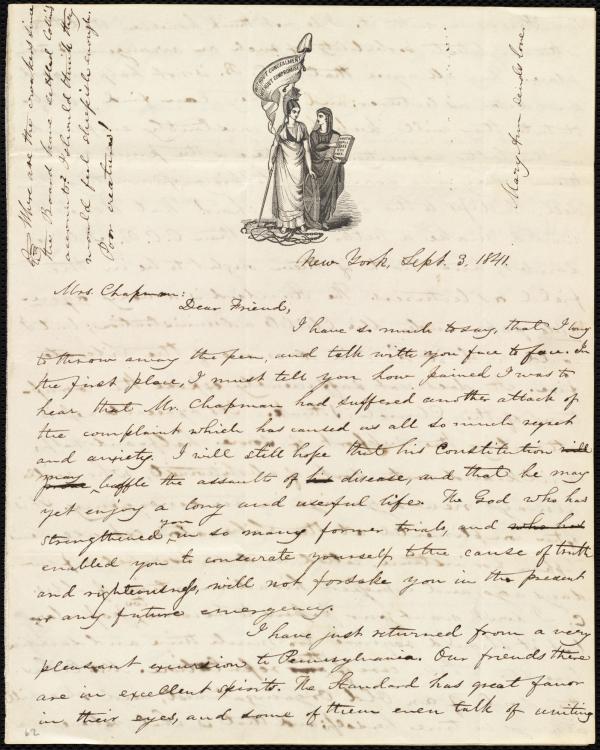 WITHOUT CONCEALMENT
WITHOUT COMPROMISE
Mary Ann sends love.
When all the preachers since
the Board have settled Collins'
accounts? I should think they
would feel sheepish enough.
Poor creatures!
New York, Sept. 3, 1841.
Mrs. Chapman:
Dear Friend,
I have so much to say, that I long
to throw away the pen, and talk with you face to face. In
the first place, I must tell you how pained I was to
hear that Mr. Chapman had suffered another attack of
the complaint which has caused us all so much regret
and anxiety. I will still hope that his constitution will
may baffle the assaults of his disease, and that he may
yet enjoy a long and useful life. The God who has
strengthened you in so many former trials, and who has
enabled you to consecrate yourself to the cause of truth
and righteousness, will not forsake you in the present
or any future emergency.
I have just returned from a very
pleasant excursion to Pennsylvania. Our friends there
are in excellent spirits. The Standard has great favor
in their eyes, and some of them even talk of uniting
62